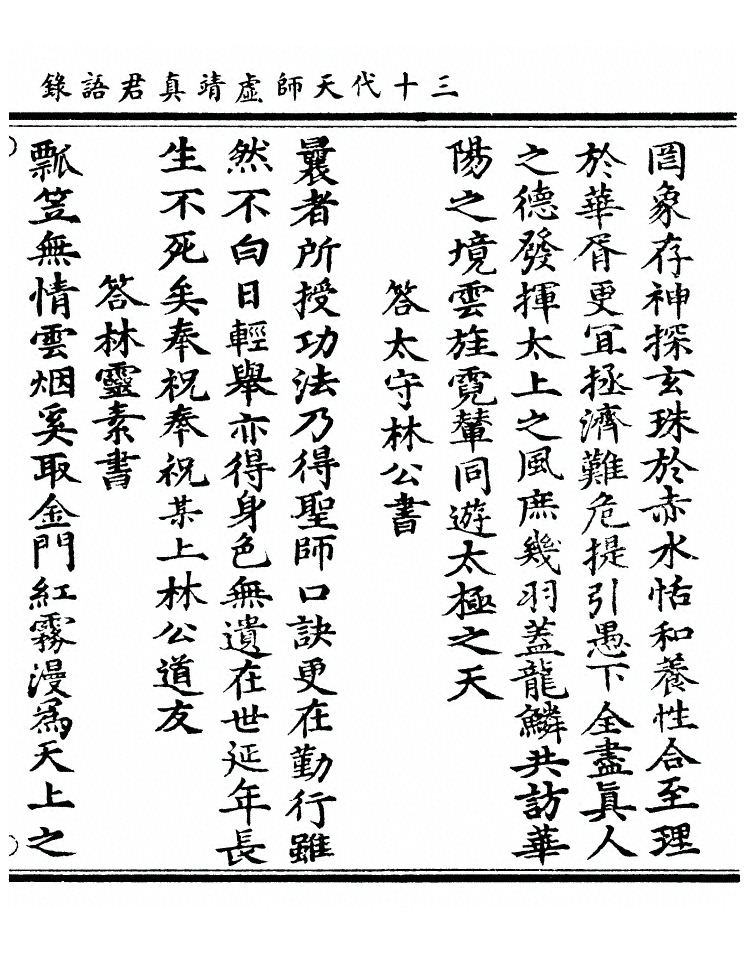 三十代天師虛靖真君語錄
罔象存神探玄珠於赤水恬和養性合至理
於華胥更宜拯濟難危提引愚下全盡眞人
之德發揮太上之風庶幾羽蓋龍鱗共訪華
陽之境雲旌霓輦同遊太極之天
答太守林公書
曩者所授功法乃得聖師口訣更在勤行雖
然不白日輕舉亦得身色無遺在世延年長
生不死矣奉祝奉祝某上林公道友
答林靈素書
瓢笠無情雲烟奚取金門紅霧漫為天上之